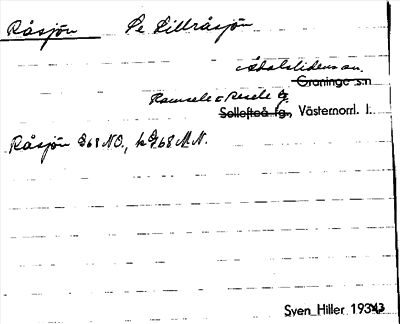 Råsjön Se Lillråsjön
Ådalslidens sn.
Graninge s:n
Ramsele o Resele tg.
Sollefteå tg., Västernorrl. l.
Råsjön 968 NO., k 968 M.N.
Sven Hiller 1943